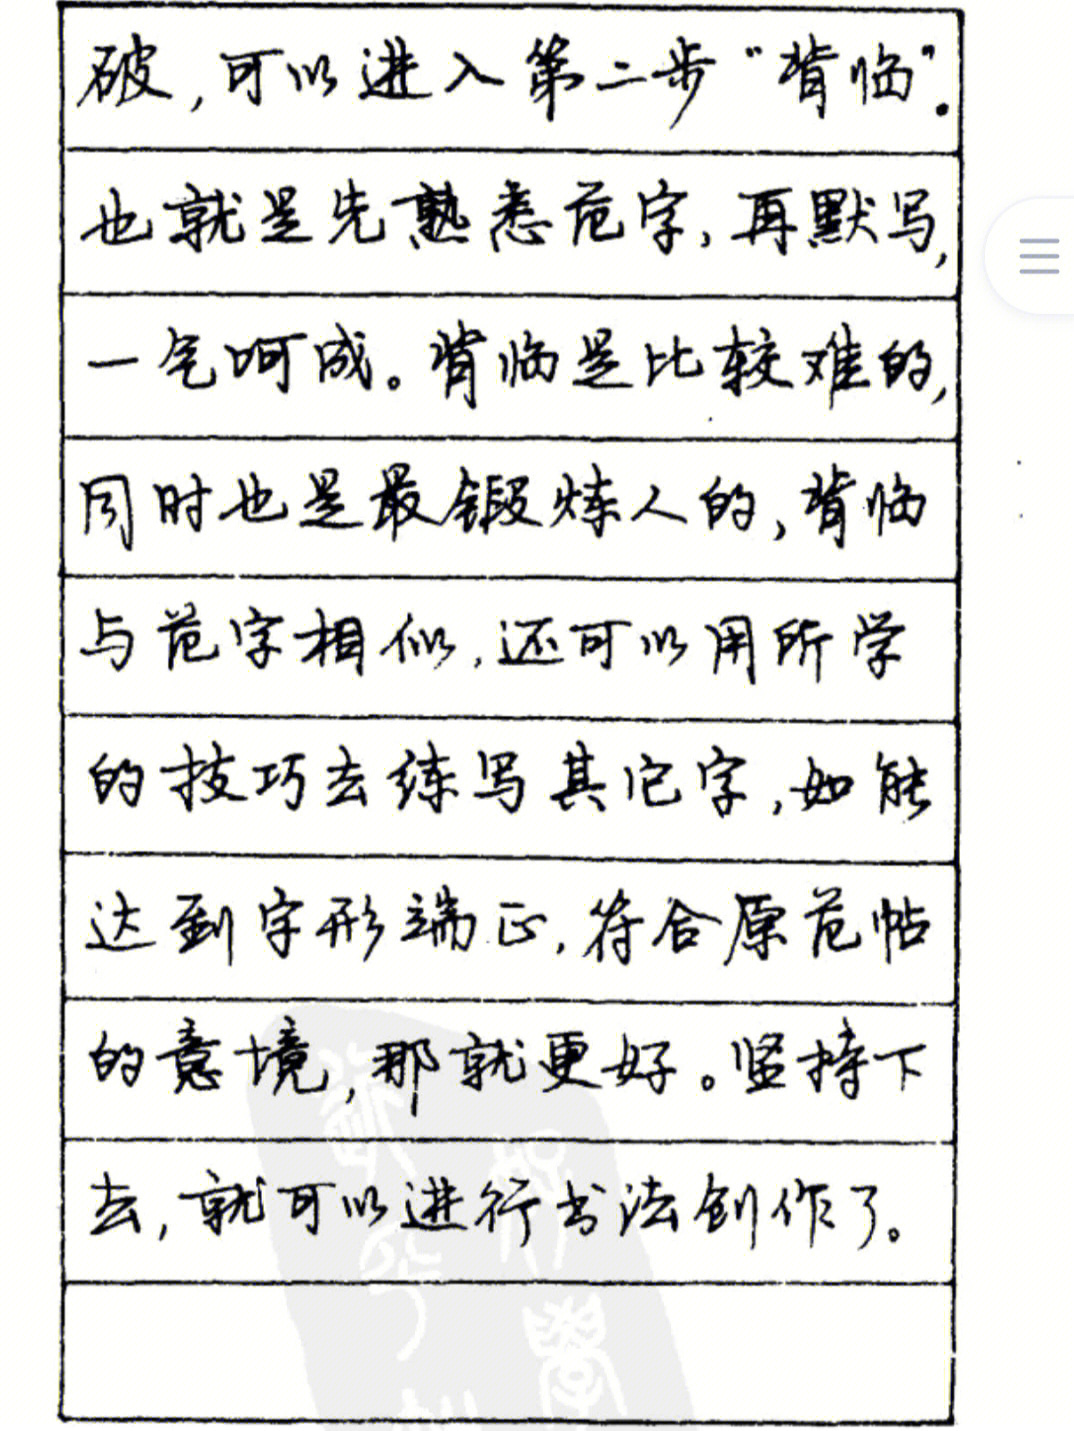 破,可以进入第二步“背临”.
也就是先熟悉范字,再默写,
一气呵成。背临是比较难的,
同时也是最锻炼人的,背临
与范字相似,还可以用所学
的技巧去练写其它字,如能
达到字形端正,符合原范帖
的意境,那就更好。坚持下
去,就可以进行书法创作了。